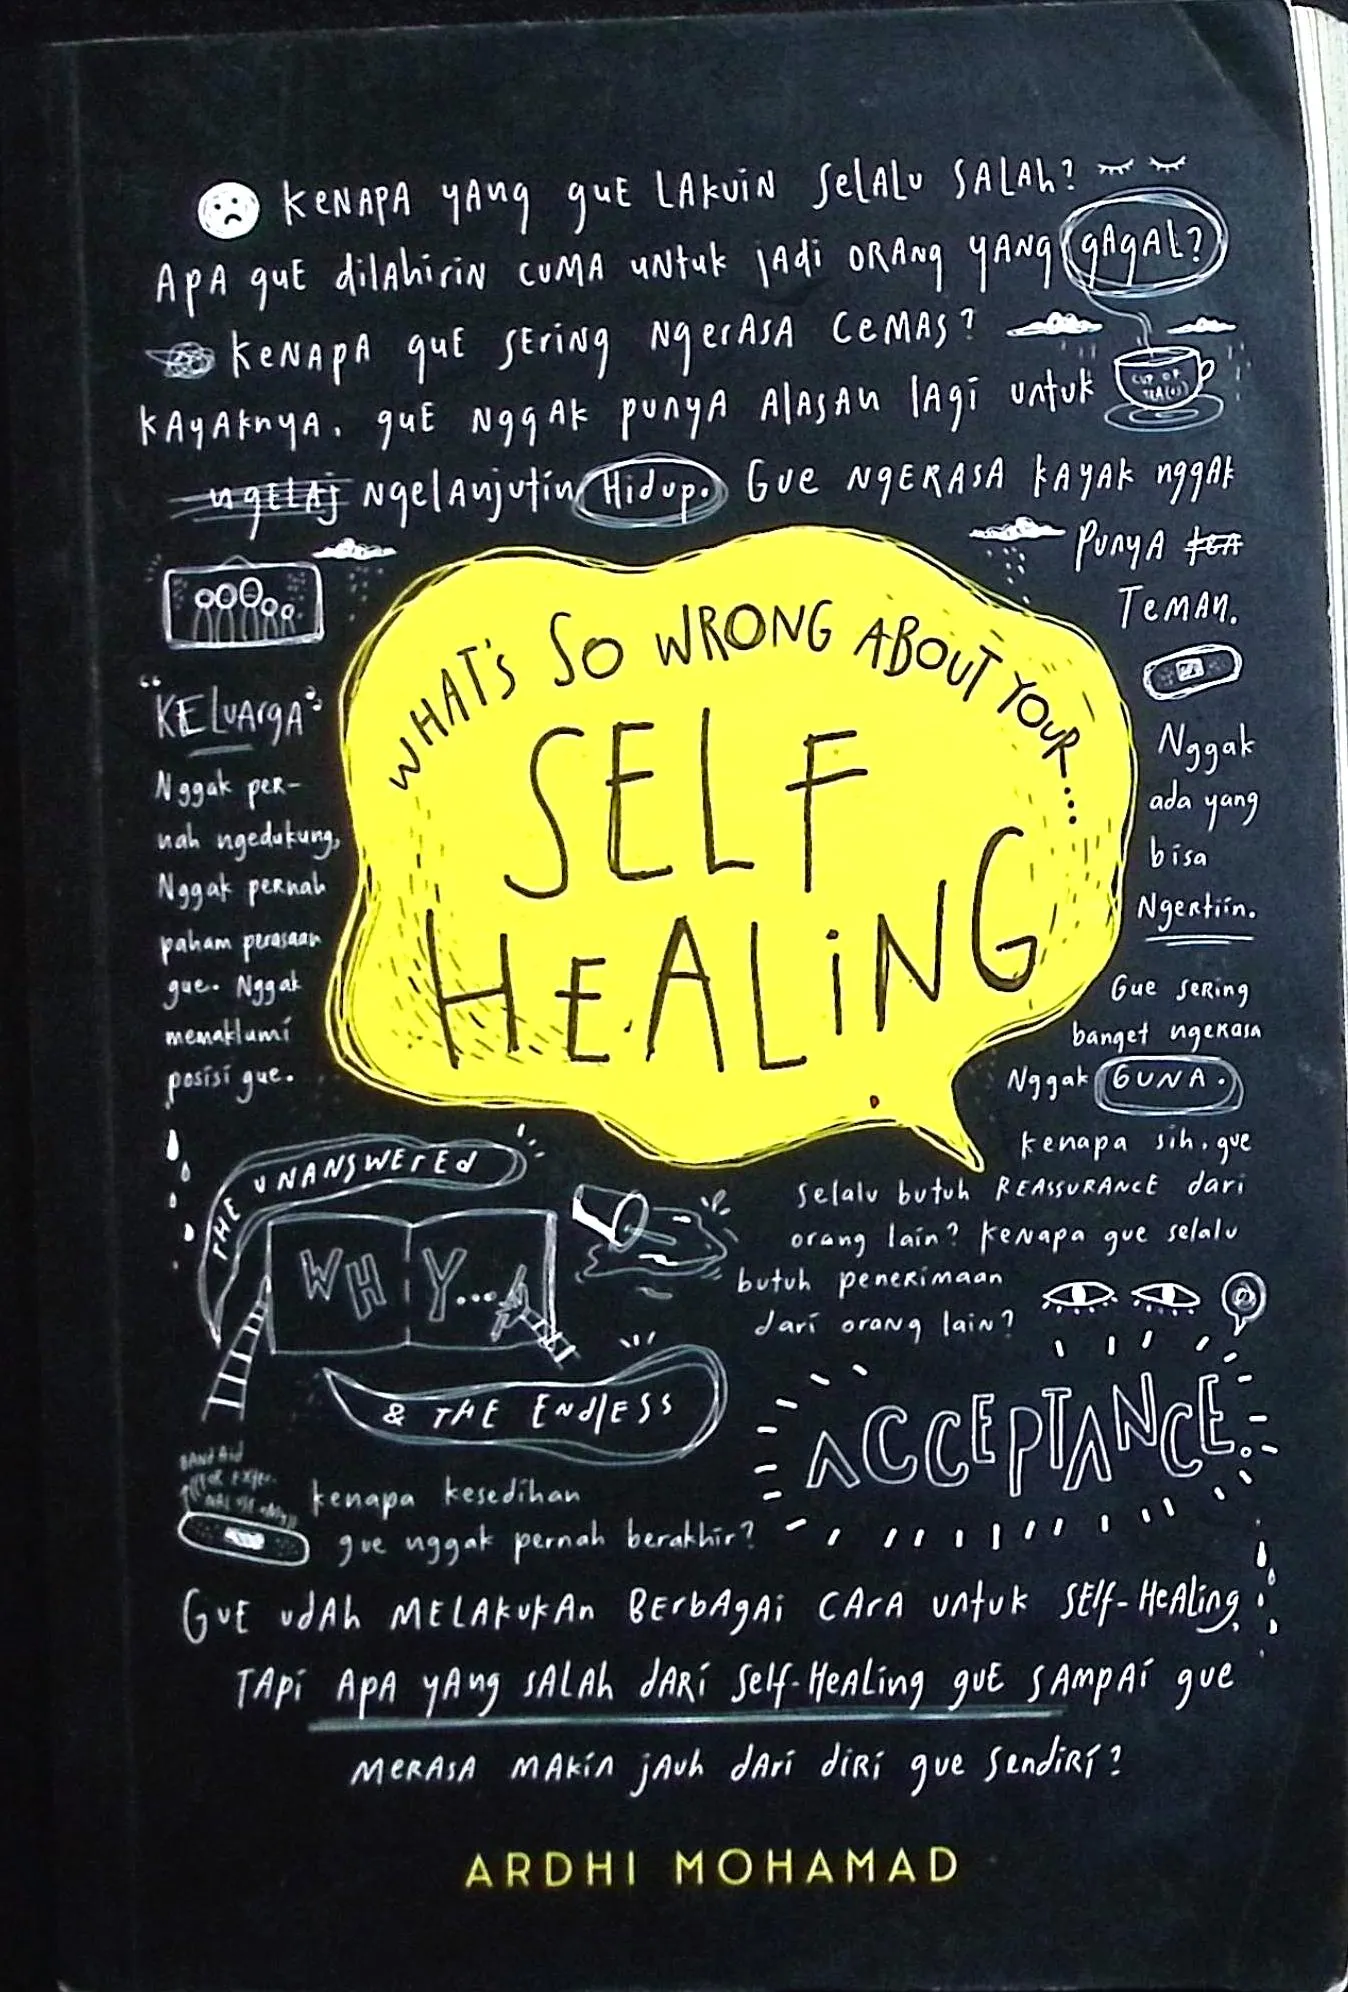 KENAPA YANG GUE LAKUIN SELALU SALAH?
APA GUE DILAHIRIN CUMA UNTUK JADI ORANG YANG GAGAL?
KENAPA GUE SERING NGERASA CEMAS?
KAYAKNYA. GUE NGGAK PUNYA ALASAN LAGI UNTUK
CUP OF
TEA(RS)
NGELAJ NGELANJUTIN HIDUP. GUE NGERASA KAYAK NGGAK
PUNYA
TEMAN.
WHAT'S SO WRONG ABOUT YOUR....
SELF
HEALING
"KELUARGA"
Nggak per-
nah ngedukung,
Nggak pernah
paham perasaan
gue. Nggak
memaklumi
posisi gue.
Nggak
ada yang
bisa
Ngertiin.
Gue sering
banget ngerasa
Nggak GUNA.
kenapa sih. gue
selalu butuh REASSURANCE dari
orang lain? kenapa gue selalu
butuh penerimaan
dari orang lain?
ACCEPTANCE.
THE UNANSWERED
WHY...
& THE ENDLESS
BAND AID
kenapa kesedihan
gue nggak pernah berakhir?
GUE UDAH MELAKUKAN BERBAGAI CARA UNTUK SELF-HEALING,
TAPI APA YANG SALAH DARI SELF-HEALING GUE SAMPAI GUE
MERASA MAKIN JAUH DARI DIRI GUE SENDIRI?
ARDHI MOHAMAD